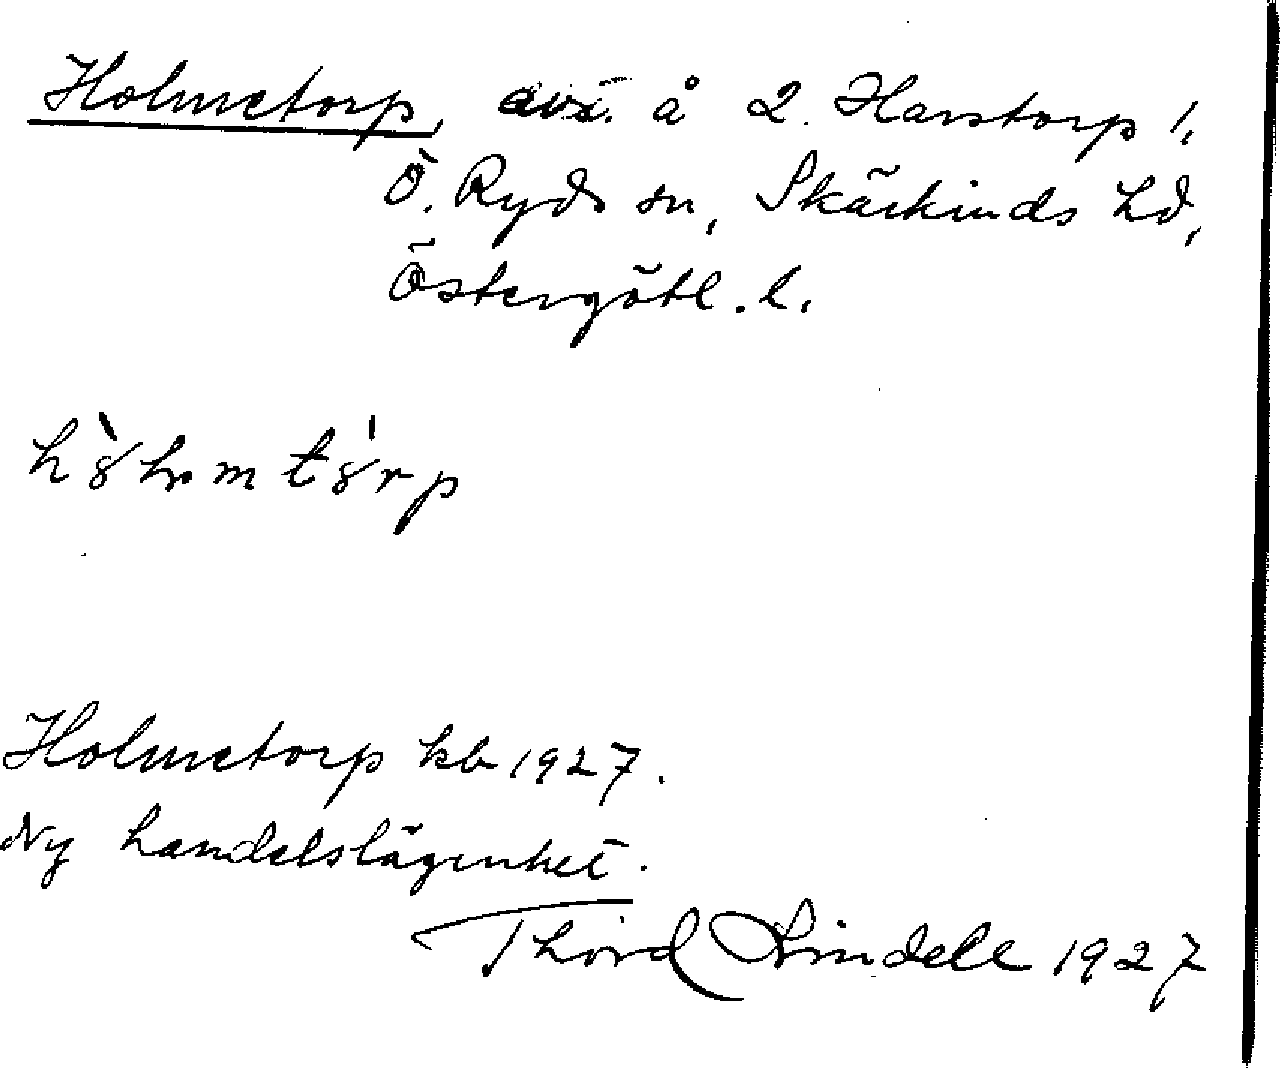 Holmetorp, avs. å 2. Harstorp 1,
Ö. Ryds sn, Skärkinds hd,
Östergötl. l.
Holmetorp kb 1927.
Ny handelslägenhet.
Thord Lindell 1927